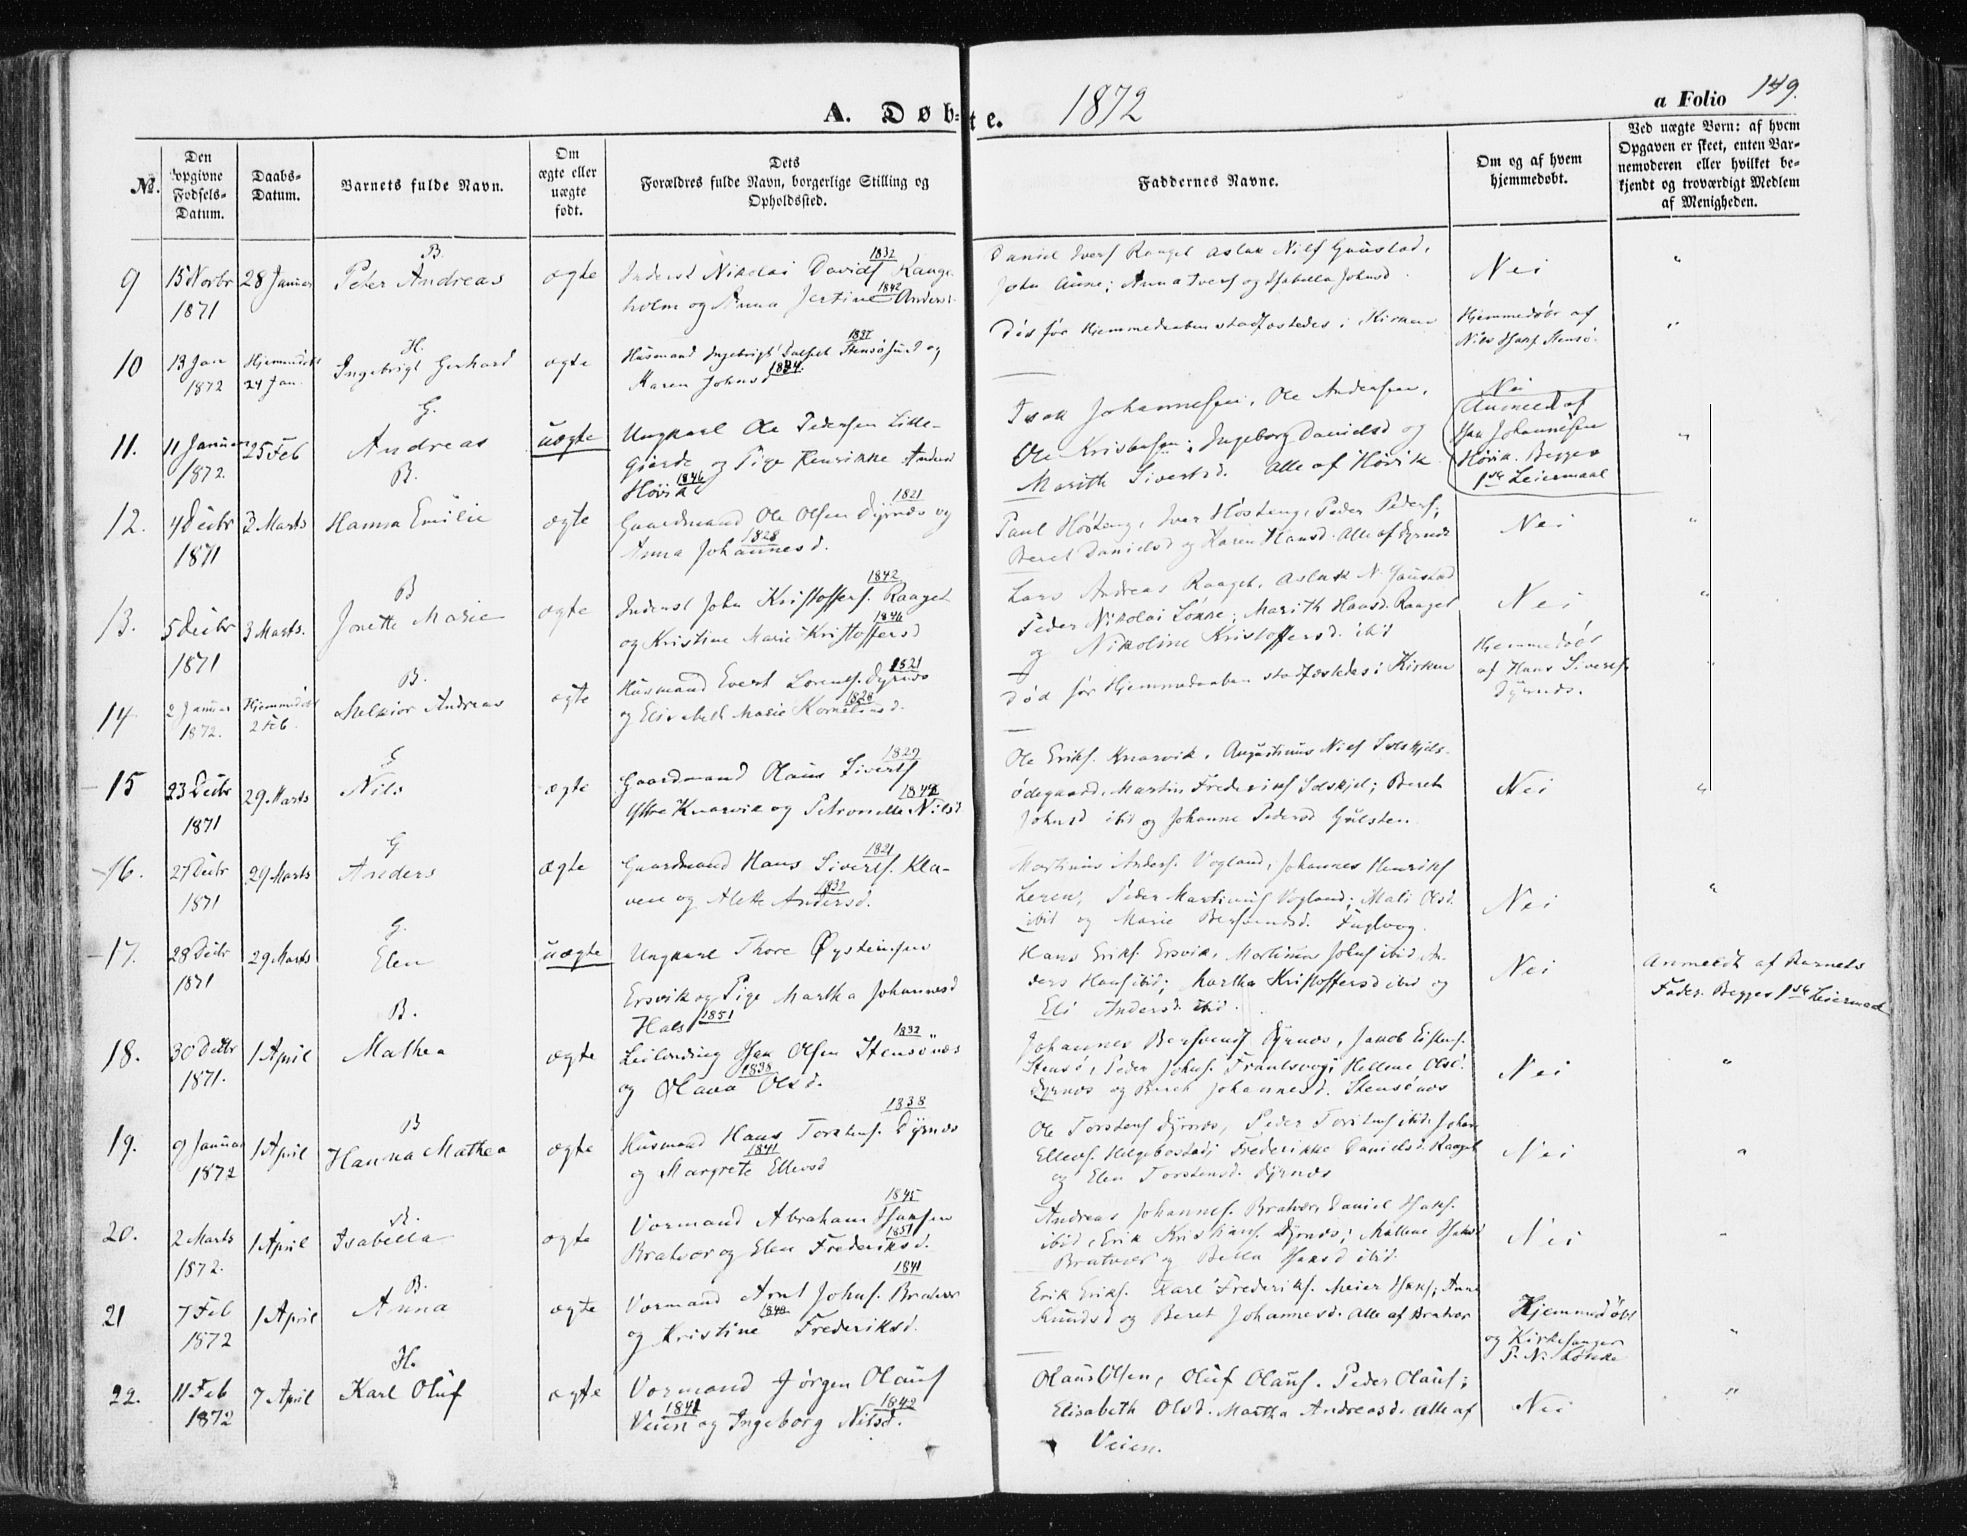 A. Døb-te. 1872
a Folio 149.
№.
Den opgivne Fødsels-Datum.
Daabs-Datum.
Barnets fulde Navn.
Om ægte eller uægte født.
Dets Forældres fulde Navn, borgerlige Stilling og Opholdssted.
Faddernes Navne.
Om og af hvem hjemmedøbt.
Ved uægte Børn: af hvem Opgaven er skeet, enten Barnemoderen eller hvilket bekjendt og troværdigt Medlem af Menigheden.
B. 1832
9 15 Novbr 28 Januar Peter Andreas ægte Inderst Nikolai Davids Kange-
1871 holm og Anna Jertine Anders
1842
Daniel Ivers Raaget Aslak Nils Gaustad,
John Aune; Anna Ivers og Isabella Johnsd. Nei "
H. 1837
10 13 Jan Hjemmedøbt Ingebrigt Gerhard ægte Husmand Ingebrigt Stensøsund og
1872 24 Jan. Karen Johnsd 1834.
Død før Hjemmedaaben stadfæstedes i Kirken Hjemmedøbt af "
Nils Isaks. Stensø.
G.
11. 11 Januar 25 Feb Andreas uægte Ungkarl Ole Pedersen Lille-
1872. Gjerde og Pige Henrikke Andersd
Høvik 1846
Isak Johannesen, Ole Andersen, Nei
Ole Kristensen; Ingeborg Danielsd og Anmeldt af
Marith Sivertsd. Alle af Høvik. Isak Johannesen "
Høvik. Begges
1ste Leiermaal
B. 1821
12. 4 Decbr 3 Marts Hanna Emilie ægte Gaardmand Ole Olsen Dyrnæs og
1871 Anna Johannesd. 1828
Paul Høsteng, Iver Høsteng, Peder Peders; Nei "
Beret Danielsd og Karen Hansd. Alle af Dyrnæs
B 1842
13. 5 Decbr 3 Marts. Jonette Marie ægte Inderst John Kristoffers. Raaget
1871 og Kristine Marie Kristoffersd 1846
Lars Andreas Raaget, Aslak N. Gaustad
Peder Nikolai Løkke; Marith Hansd. Raaget Nei "
og Nikoline Kristoffersd. ibid
B. 1821
14 2 Januar Hjemmedøbt Melkior Andreas ægte Husmand Evert Lorents. Dyrnæs
1872. 2 Feb. og Elisabeth Marie Korneliusd. 1828
Død før Hjemmedaaben stadfæstedes i Kirken Hjemmedøbt
af Hans Siverts. "
Dyrnæs.
G 1829
15 23 Decbr 29 Marts Nils ægte Gaardmand Olaus Siverts
1871 Ytre Knarvik og Petronelle Nilsd 1842
Ole Eriks. Knarvik, Augustinus Niels Solskjels-
ødegaard, Martin Frederiks Solskjel; Beret Nei "
Johnsd ibid og Johanne Pedersd Gulsten.
G 1821
16. 27 Decbr 29 Marts Anders ægte Gaardmand Hans Siverts. Kla-
1871 ven og Alette Andersd. 1832
Martinus Anders. Vogland, Johannes Henriks
Leren, Peder Martinus Vogland; Mali Olsd. Nei "
ibid og Marie Bersvendsd. Fuglvog.
G.
17. 28 Decbr 29 Marts Elen uægte Ungkarl Thore Øysteinsen
1871 Ersvik og Pige Martha Johannesd
Hals 1851
Hans Eriks. Ersvik, Martinus Johns ibid An-
ders Hans ibid; Martha Kristoffersd ibid og Nei Anmeldt af Barnets
Eli Andersd. ibid. Fader. Begges 1ste Leiermaal
B. 1832
18. 30 Decbr 1 April Mathea ægte Leilending Isak Olsen Stensønæs
1871. og Olava Olsd. 1838
Johannes Bersvends Dyrnæs, Jakob
Stensø, Peder Johns. Frantsvog; Hellene Olsd. Nei "
Dyrnæs og Beret Johannesd. Stensønæs
B 1838
19. 9 Januar 1 April Hanna Mathea ægte Husmand Hans Torstens. Dyrnæs
1872 og Margrete Ellevsd 1841
Ole Torstens Dyrnæs, Peder Torstens ibid. Johan
Ellevs. Helgebostad; Frederikke Danielsd. Raaget Nei "
og Elen Torstensd. Dyrnæs
B. 1845
20. 2 Marts 1 April Isabella ægte Vormand Abraham Isaksen
1872. Bratvær og Elen Frederiksd. 1851
Andreas Johannes. Bratvær, Daniel Isaks.
ibid, Erik Kristians. Dyrnæs; Mallene Isaksd Nei "
Bratvær og Isaksd ibid.
B. 1841
21 7 Feb 1 April Anna ægte Vormand Arnt Johns. Bratvær
1872 og Kristine Frederiksd. 1840
Erik Eriks. Karl Frederiks. Meier Isaks; Anne
Knudsd og Beret Johannesd. Alle af Bratvær Hjemmedøbt
og Kirkesanger "
P. N. Løkke
H.
22. 11 Feb 7 April Karl Oluf ægte Vormand Jørgen Olaus
1872 Veien og Ingeborg Nilsd.
1841 1842
Olaus Olsen, Oluf Olaus. Peder Olaus;
Elisabeth Olsd. Martha Andreasd. Alle af Nei "
Veien.